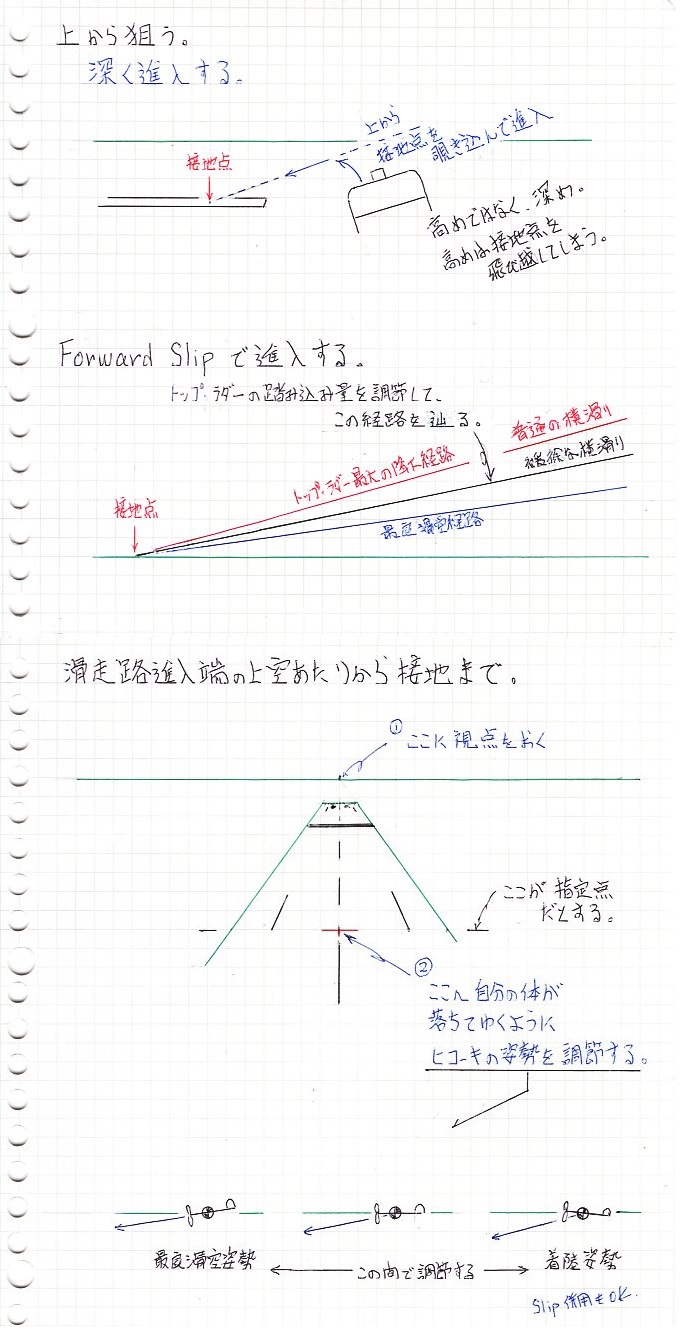 上から狙う。
深く進入する。
上から
接地点を
覗き込んで進入
接地点
高めではなく、深め。
高めは接地点を
飛び越してしまう。
Forward Slip で進入する。
トップ・ラダーの踏み込み量を調節して、
この経路を辿る。
普通の横滑り
トップ・ラダー最大の降下経路
緩徐な横滑り
接地点
最良滑空経路
滑走路進入端の上空あたりから接地まで。
① ここに視点をおく
ここが指定点
だとする。
②
ここへ自分の体が
落ちてゆくように
ヒコーキの姿勢を調節する。
最良滑空姿勢
この間で調節する
着陸姿勢
Slip併用もOK.